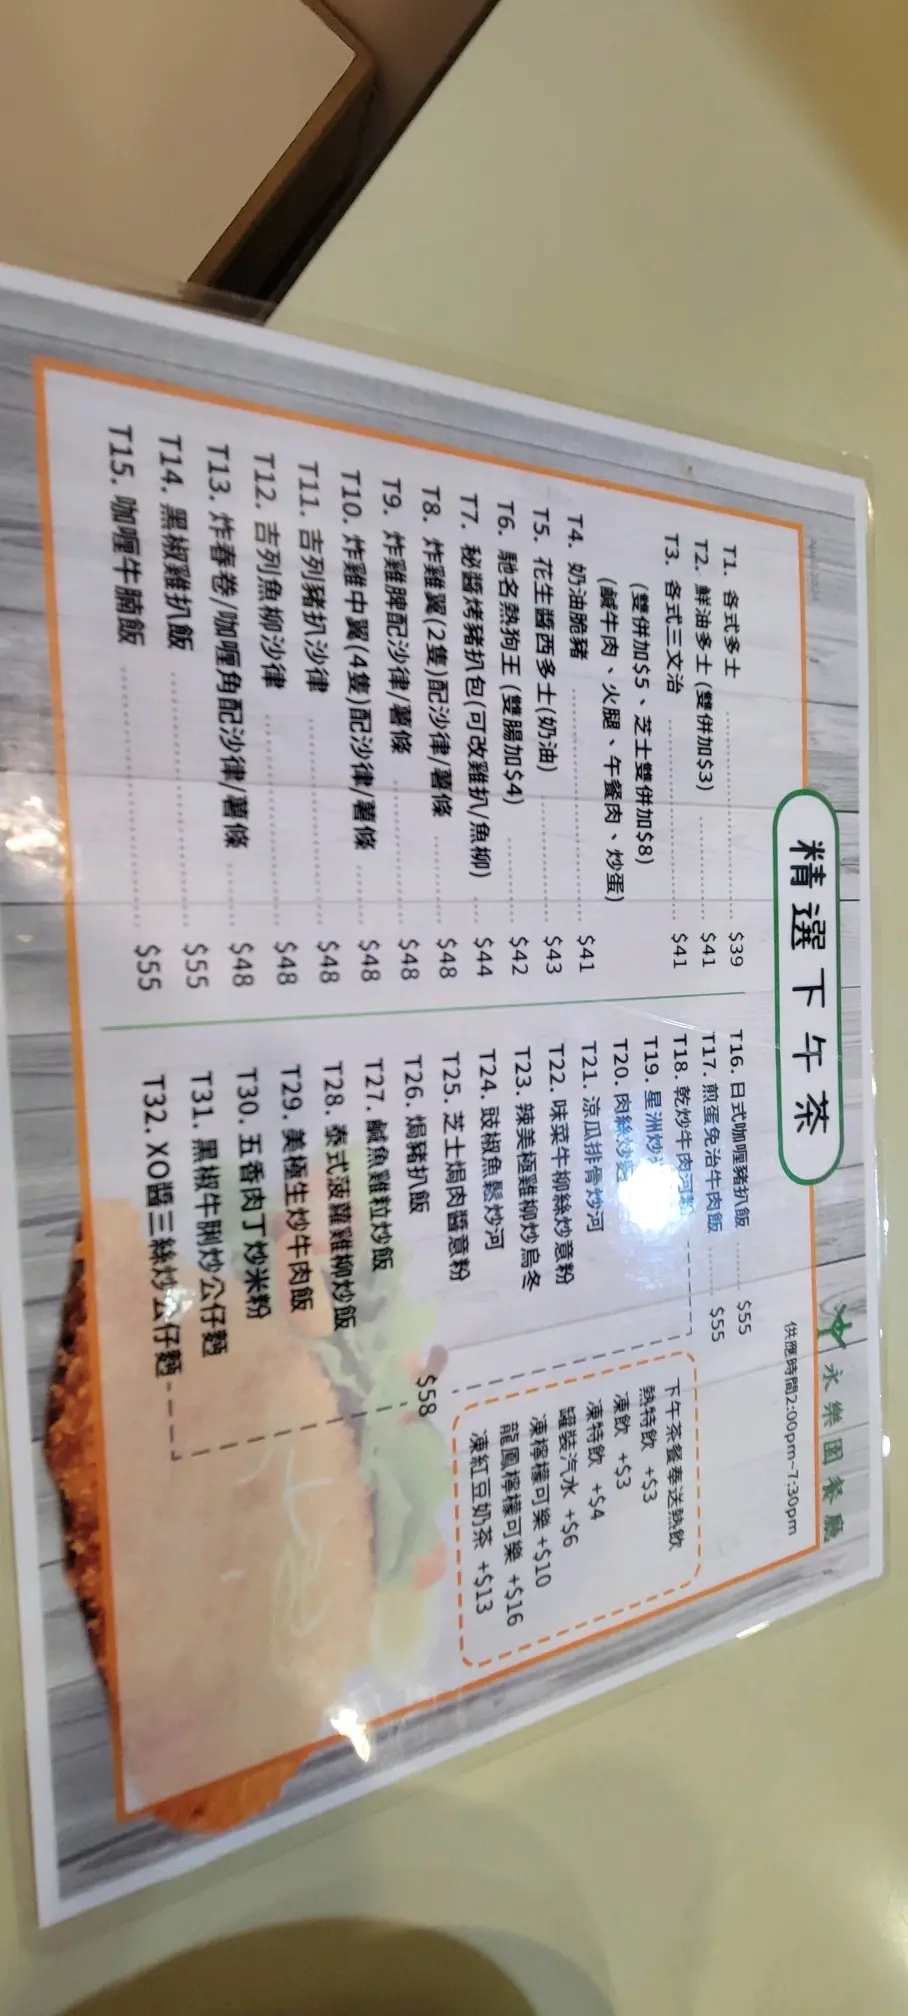 永樂園餐廳
精選下午茶
供應時間2:00pm-7:30pm
T1. 各式多士 $39
T2. 鮮油多士 (雙併加$3) $41
T3. 各式三文治 $41
(雙併加$5、芝士雙併加$8)
(鹹牛肉、火腿、午餐肉、炒蛋)
T4. 奶油脆豬 $41
T5. 花生醬西多士(奶油) $43
T6. 馳名熱狗王 (雙腸加$4) $42
T7. 秘醬烤豬扒包(可改雞扒/魚柳) $44
T8. 炸雞翼(2隻)配沙律/薯條 $48
T9. 炸雞脾配沙律/薯條 $48
T10. 炸雞中翼(4隻)配沙律/薯條 $48
T11. 吉列豬扒沙律 $48
T12. 吉列魚柳沙律 $48
T13. 炸春卷/咖喱角配沙律/薯條 $48
T14. 黑椒雞扒飯 $55
T15. 咖喱牛腩飯 $55
T16. 日式咖喱豬扒飯 $55
T17. 煎蛋免治牛肉飯 $55
T18. 乾炒牛肉河粉
T19. 星洲炒
T20. 肉絲炒
T21. 涼瓜排骨炒河
T22. 味菜牛柳絲炒意粉
T23. 辣美極雞柳炒烏冬
T24. 豉椒魚鬆炒河
T25. 芝士焗肉醬意粉
T26. 焗豬扒飯
T27. 鹹魚雞粒炒飯
T28. 泰式菠蘿雞柳炒飯
T29. 美極生炒牛肉飯
T30. 五香肉丁炒米粉
T31. 黑椒牛脷炒公仔麵
T32. XO醬三絲炒公仔麵
$58
下午茶餐奉送熱飲
熱特飲 +$3
凍飲 +$3
凍特飲 +$4
罐裝汽水 +$6
凍檸檬可樂 +$10
龍鳳檸檬可樂 +$16
凍紅豆奶茶 +$13